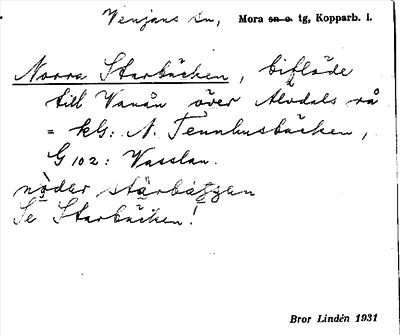 Venjans sn, Mora sn o. tg, Kopparb. l.
Norra Starbäcken, biflöde
till Vanån över Älvdals rå
= kG: N. Tennbusbäcken,
G 102: Vasslan.
nòdər stárbäggen
Se Starbäcken!
Bror Lindén 1931